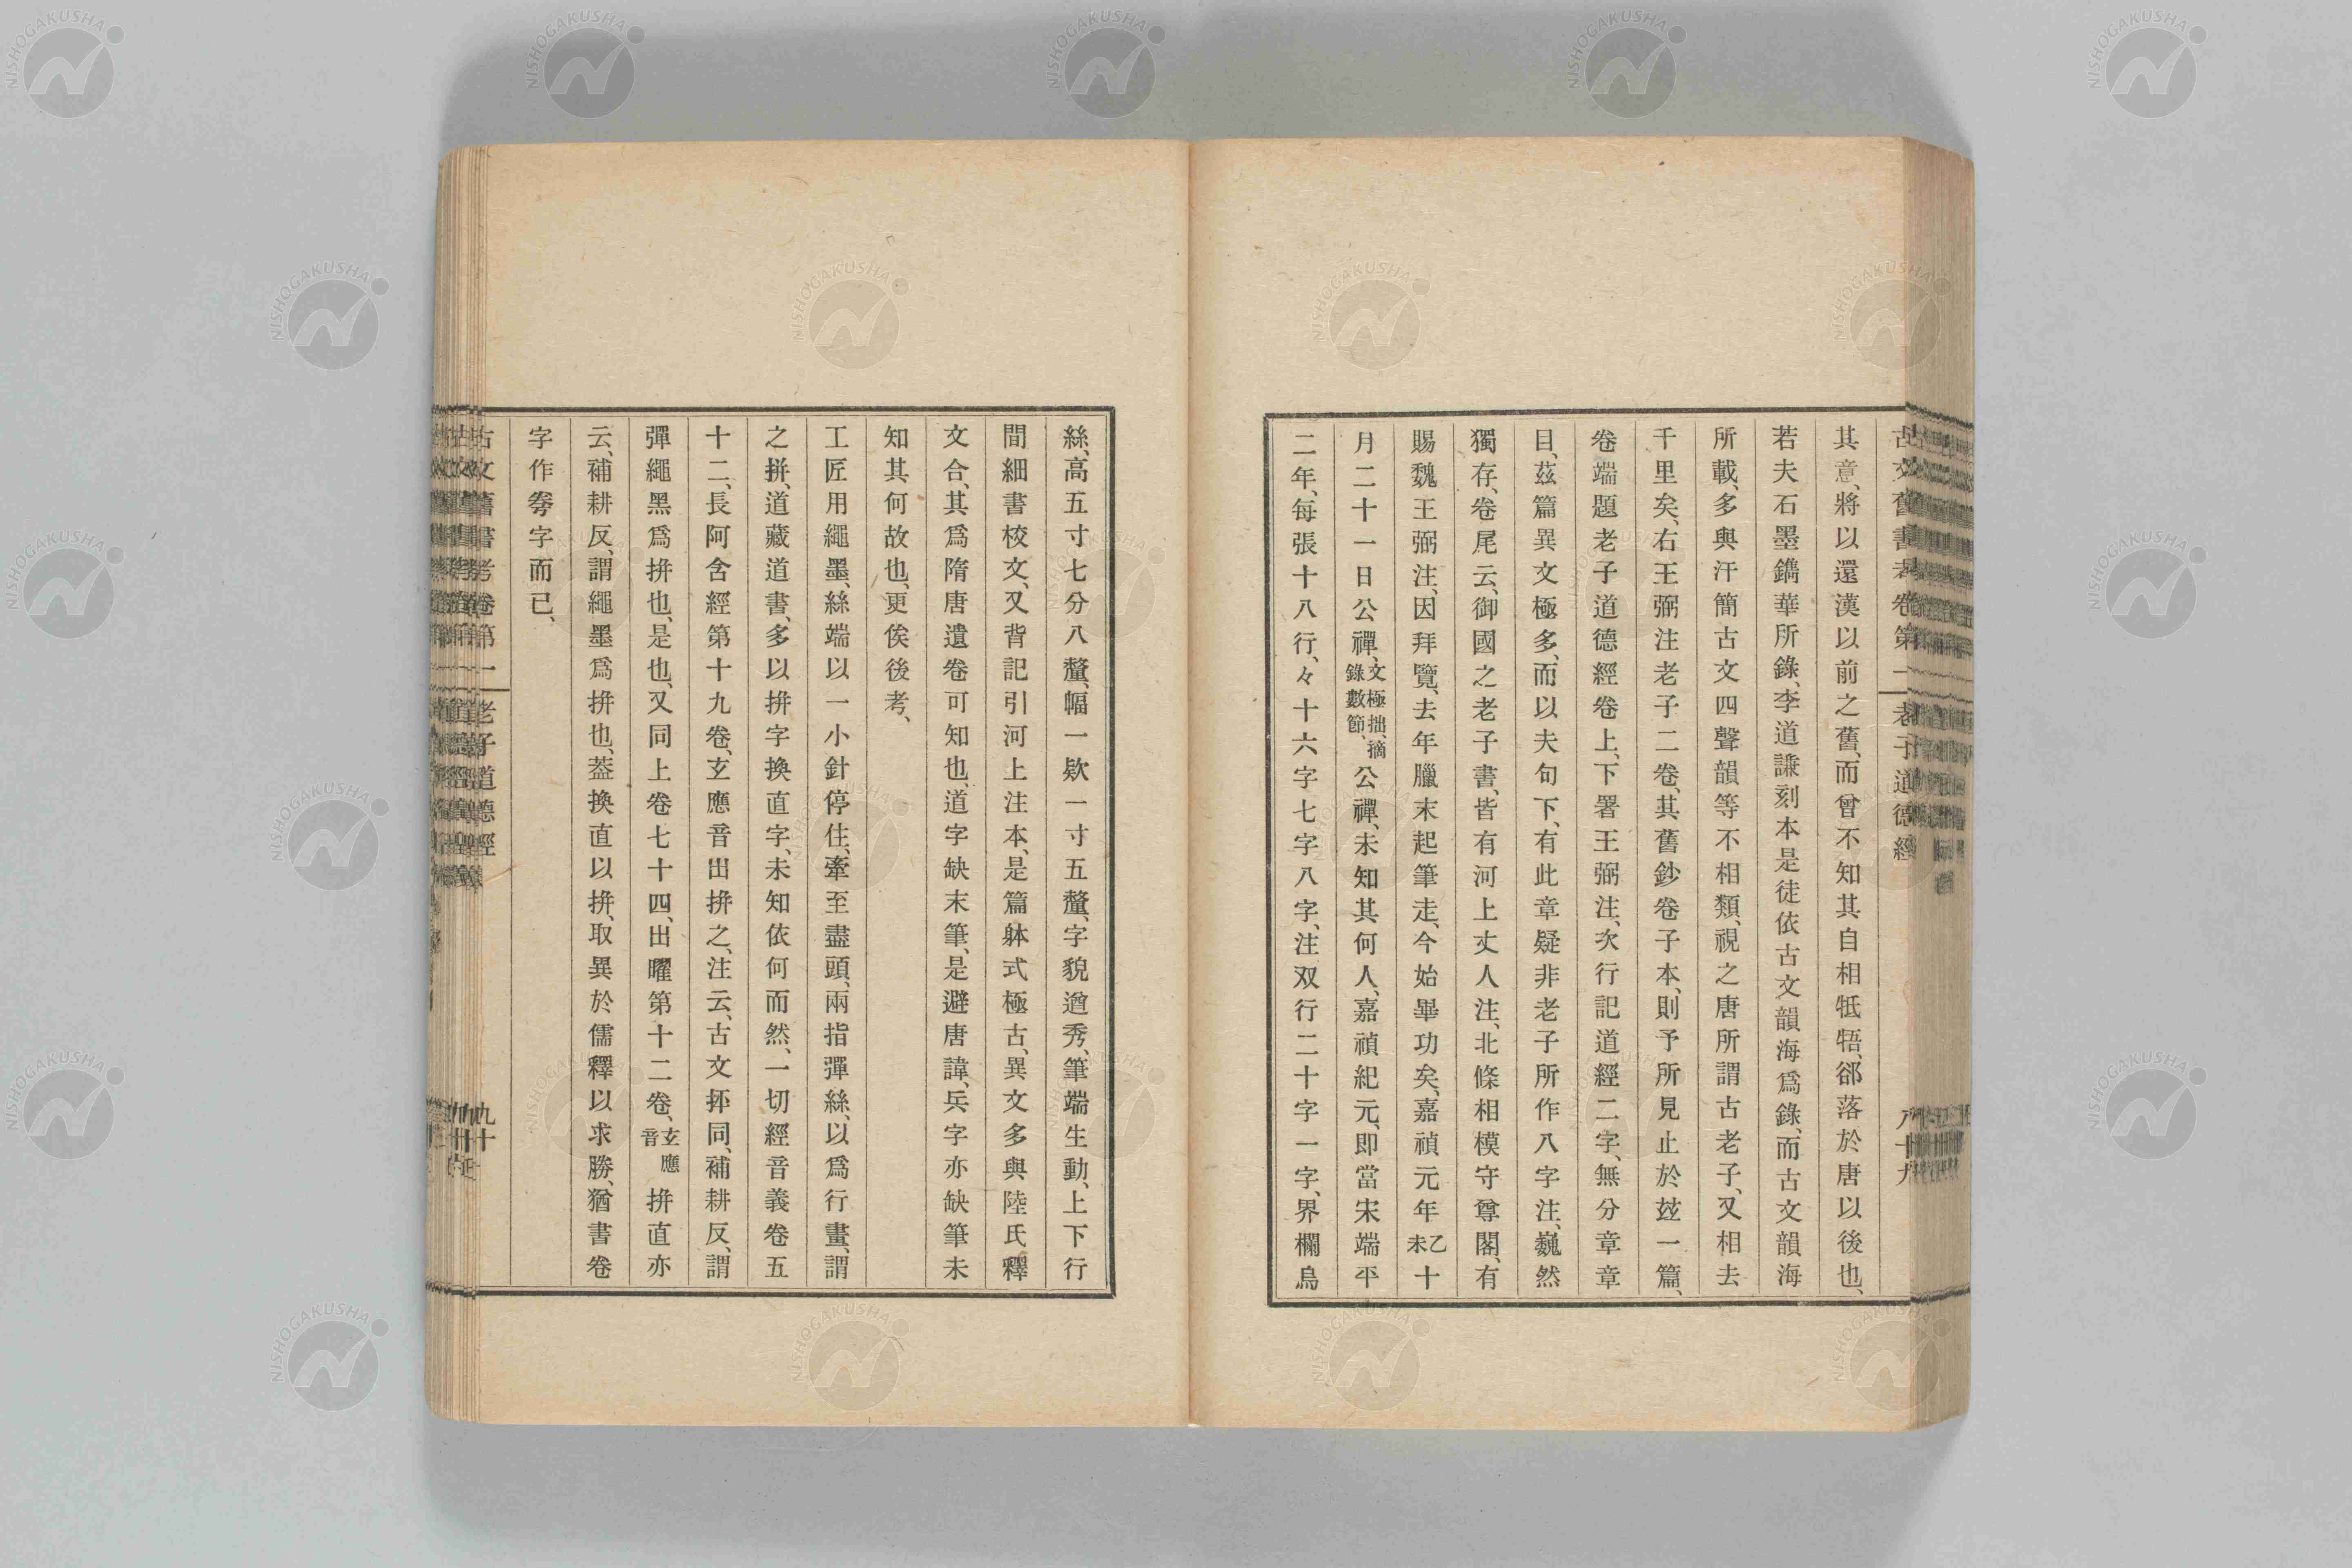 古文舊書考卷第一 老子道德經 八十九
其意、將以還漢以前之舊、而曾不知其自相牴牾、郤落於唐以後也、
若夫石墨鐫華所錄、李道謙刻本是徒依古文韻海爲錄、而古文韻海
所載、多與汗簡古文四聲韻等不相類、視之唐所謂古老子、又相去
千里矣、右王弼注老子二卷、其舊鈔卷子本、則予所見止於茲一篇、
卷端題老子道德經卷上、下署王弼注、次行記道經二字、無分章章
目、茲篇異文極多、而以夫句下、有此章疑非老子所作八字注、巍然
獨存、卷尾云、御國之老子書、皆有河上丈人注、北條相模守尊閣、有
賜魏王弼注、因拜覽、去年臘末起筆走、今始畢功矣、嘉禎元年乙未十
月二十一日公禪、文極拙、摘錄數節、公禪、未知其何人、嘉禎紀元、即當宋端平
二年、每張十八行、々十六字七字八字、注双行二十字一字、界欄烏
絲、高五寸七分八釐、幅一欵一寸五釐、字貌遒秀、筆端生動、上下行
間細書校文、又背記引河上注本、是篇躰式極古、異文多與陸氏釋
文合、其爲隋唐遺卷可知也、道字缺末筆、是避唐諱、兵字亦缺筆未
知其何故也、更俟後考、
工匠用繩墨、絲端以一小針停住、牽至盡頭、兩指彈絲、以爲行畫、謂
之拼、道藏道書、多以拼字換直字、未知依何而然、一切經音義卷五
十二、長阿含經第十九卷、玄應音出拼之、注云、古文抨同、補耕反、謂
彈繩黑爲拼也、是也、又同上卷七十四、出曜第十二卷、玄應音 拼直亦
云、補耕反、謂繩墨爲拼也、葢換直以拼、取異於儒釋以求勝、猶書卷
字作弮字而已、
古文舊書考卷第一 老子道德經 九十